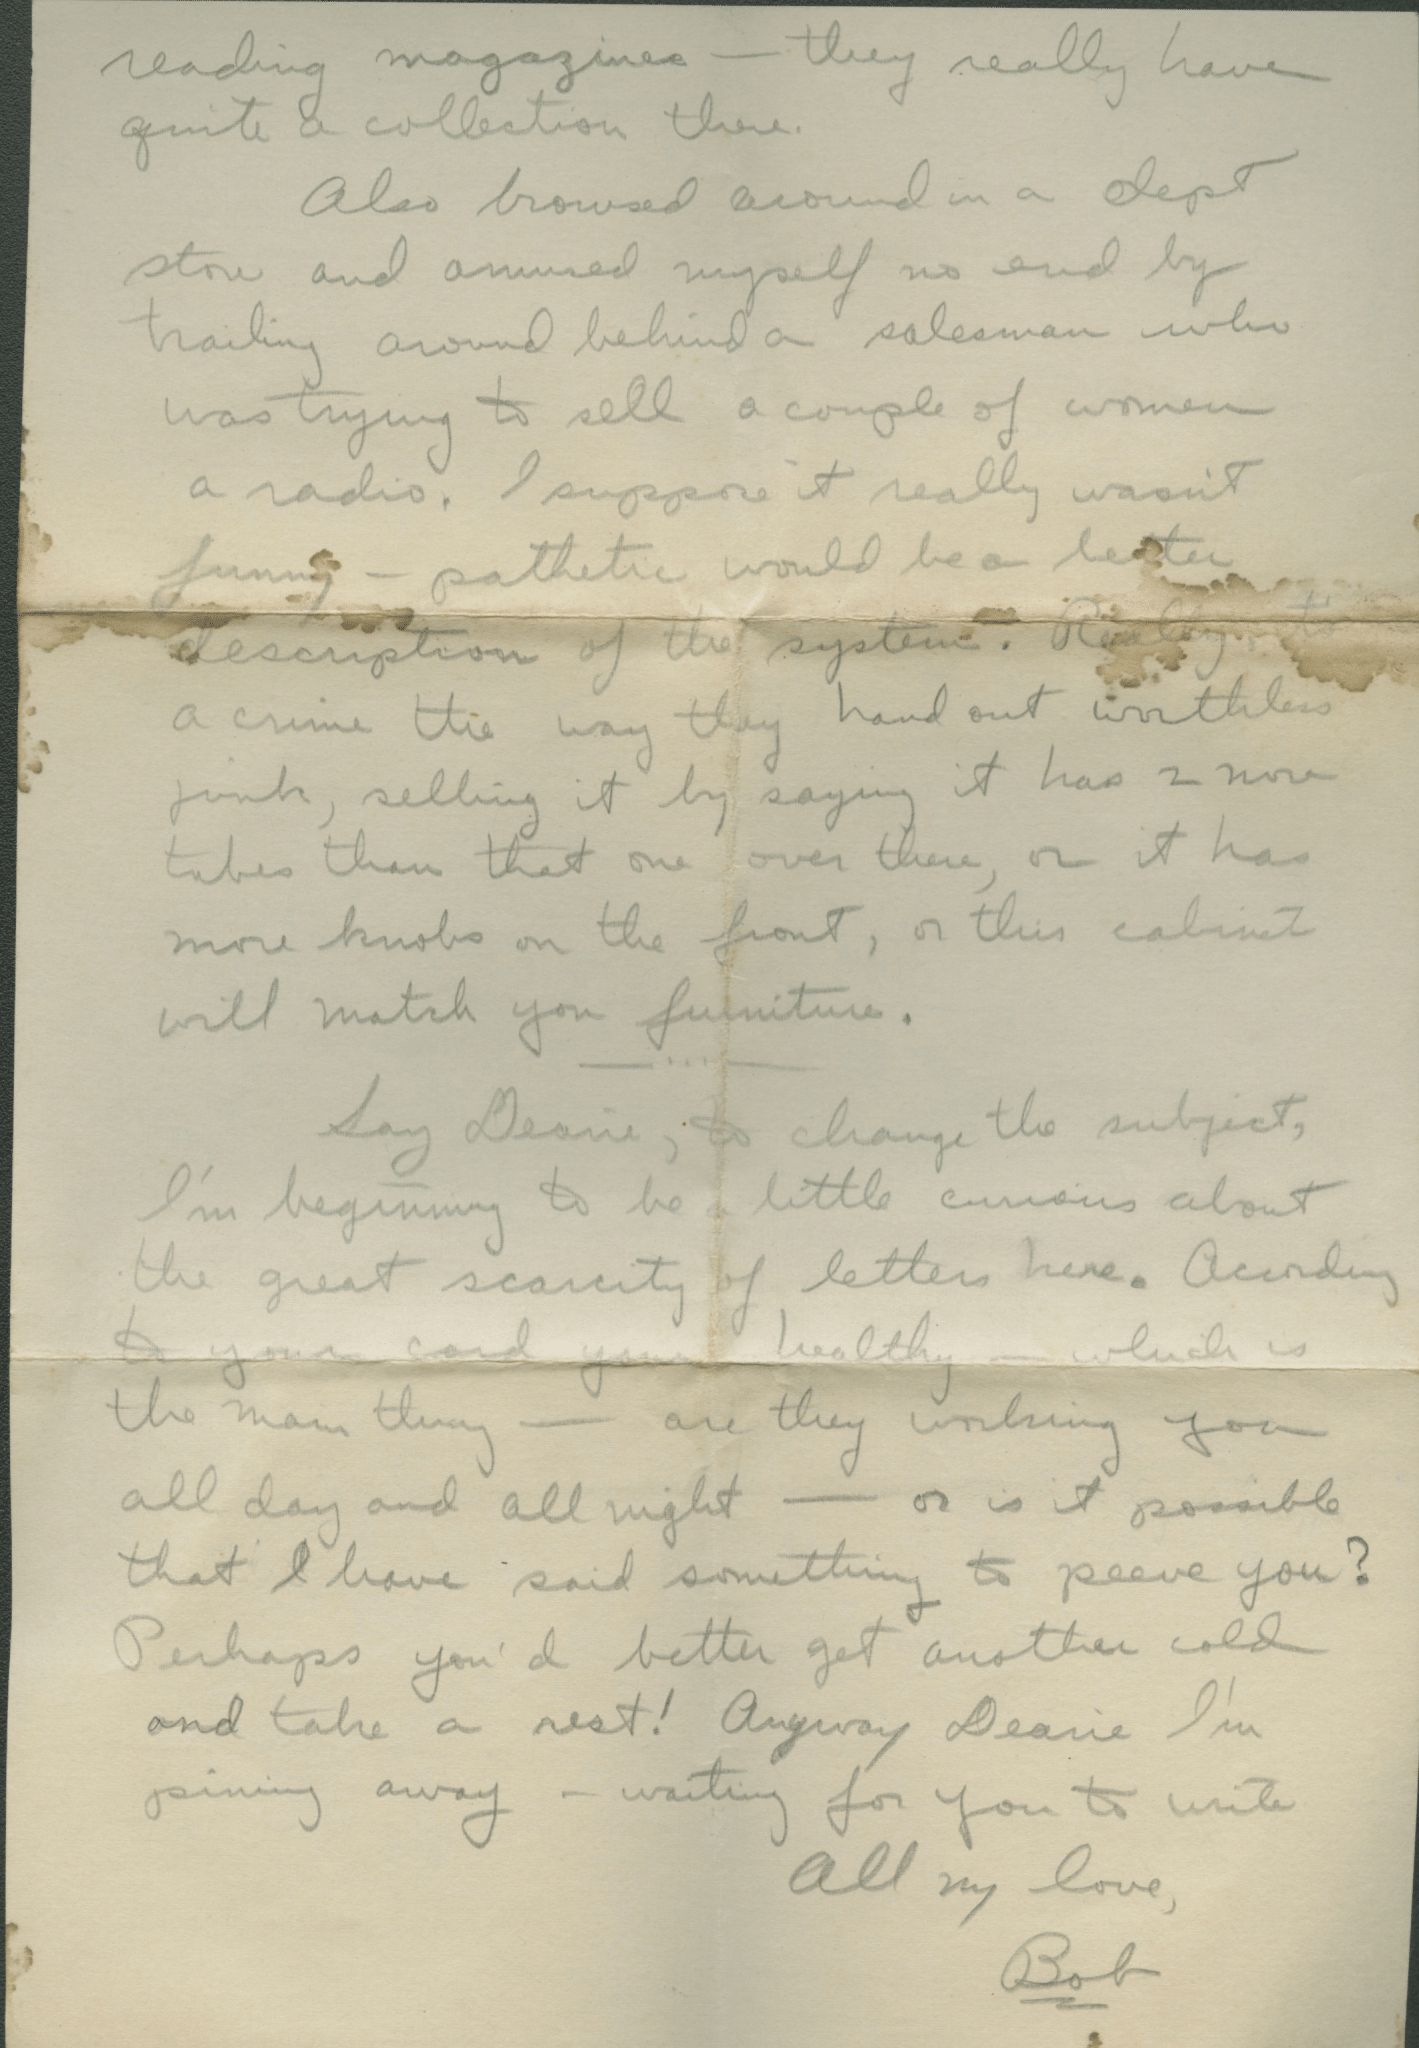 reading magazines — they really have
quite a collection there.
Also browsed around in a dept
store and amused myself no end by
trailing around behind a salesman who
was trying to sell a couple of women
a radio. I suppose it really wasn't
funny — pathetic would be a better
description of the system. Really, it's
a crime the way they hand out worthless
junk, selling it by saying it has 2 more
tubes than that one over there, or it has
more knobs on the front, or this cabinet
will match you furniture.
— ... —
Say Dearie, to change the subject,
I'm beginning to be a little curious about
the great scarcity of letters here. Acording
to your card your healthy — which is
the main thing — are they working you
all day and all night — or is it possible
that I have said something to peeve you?
Perhaps you'd better get another cold
and take a rest! Anyway Dearie I'm
pining away — waiting for you to write
All my love,
Bob